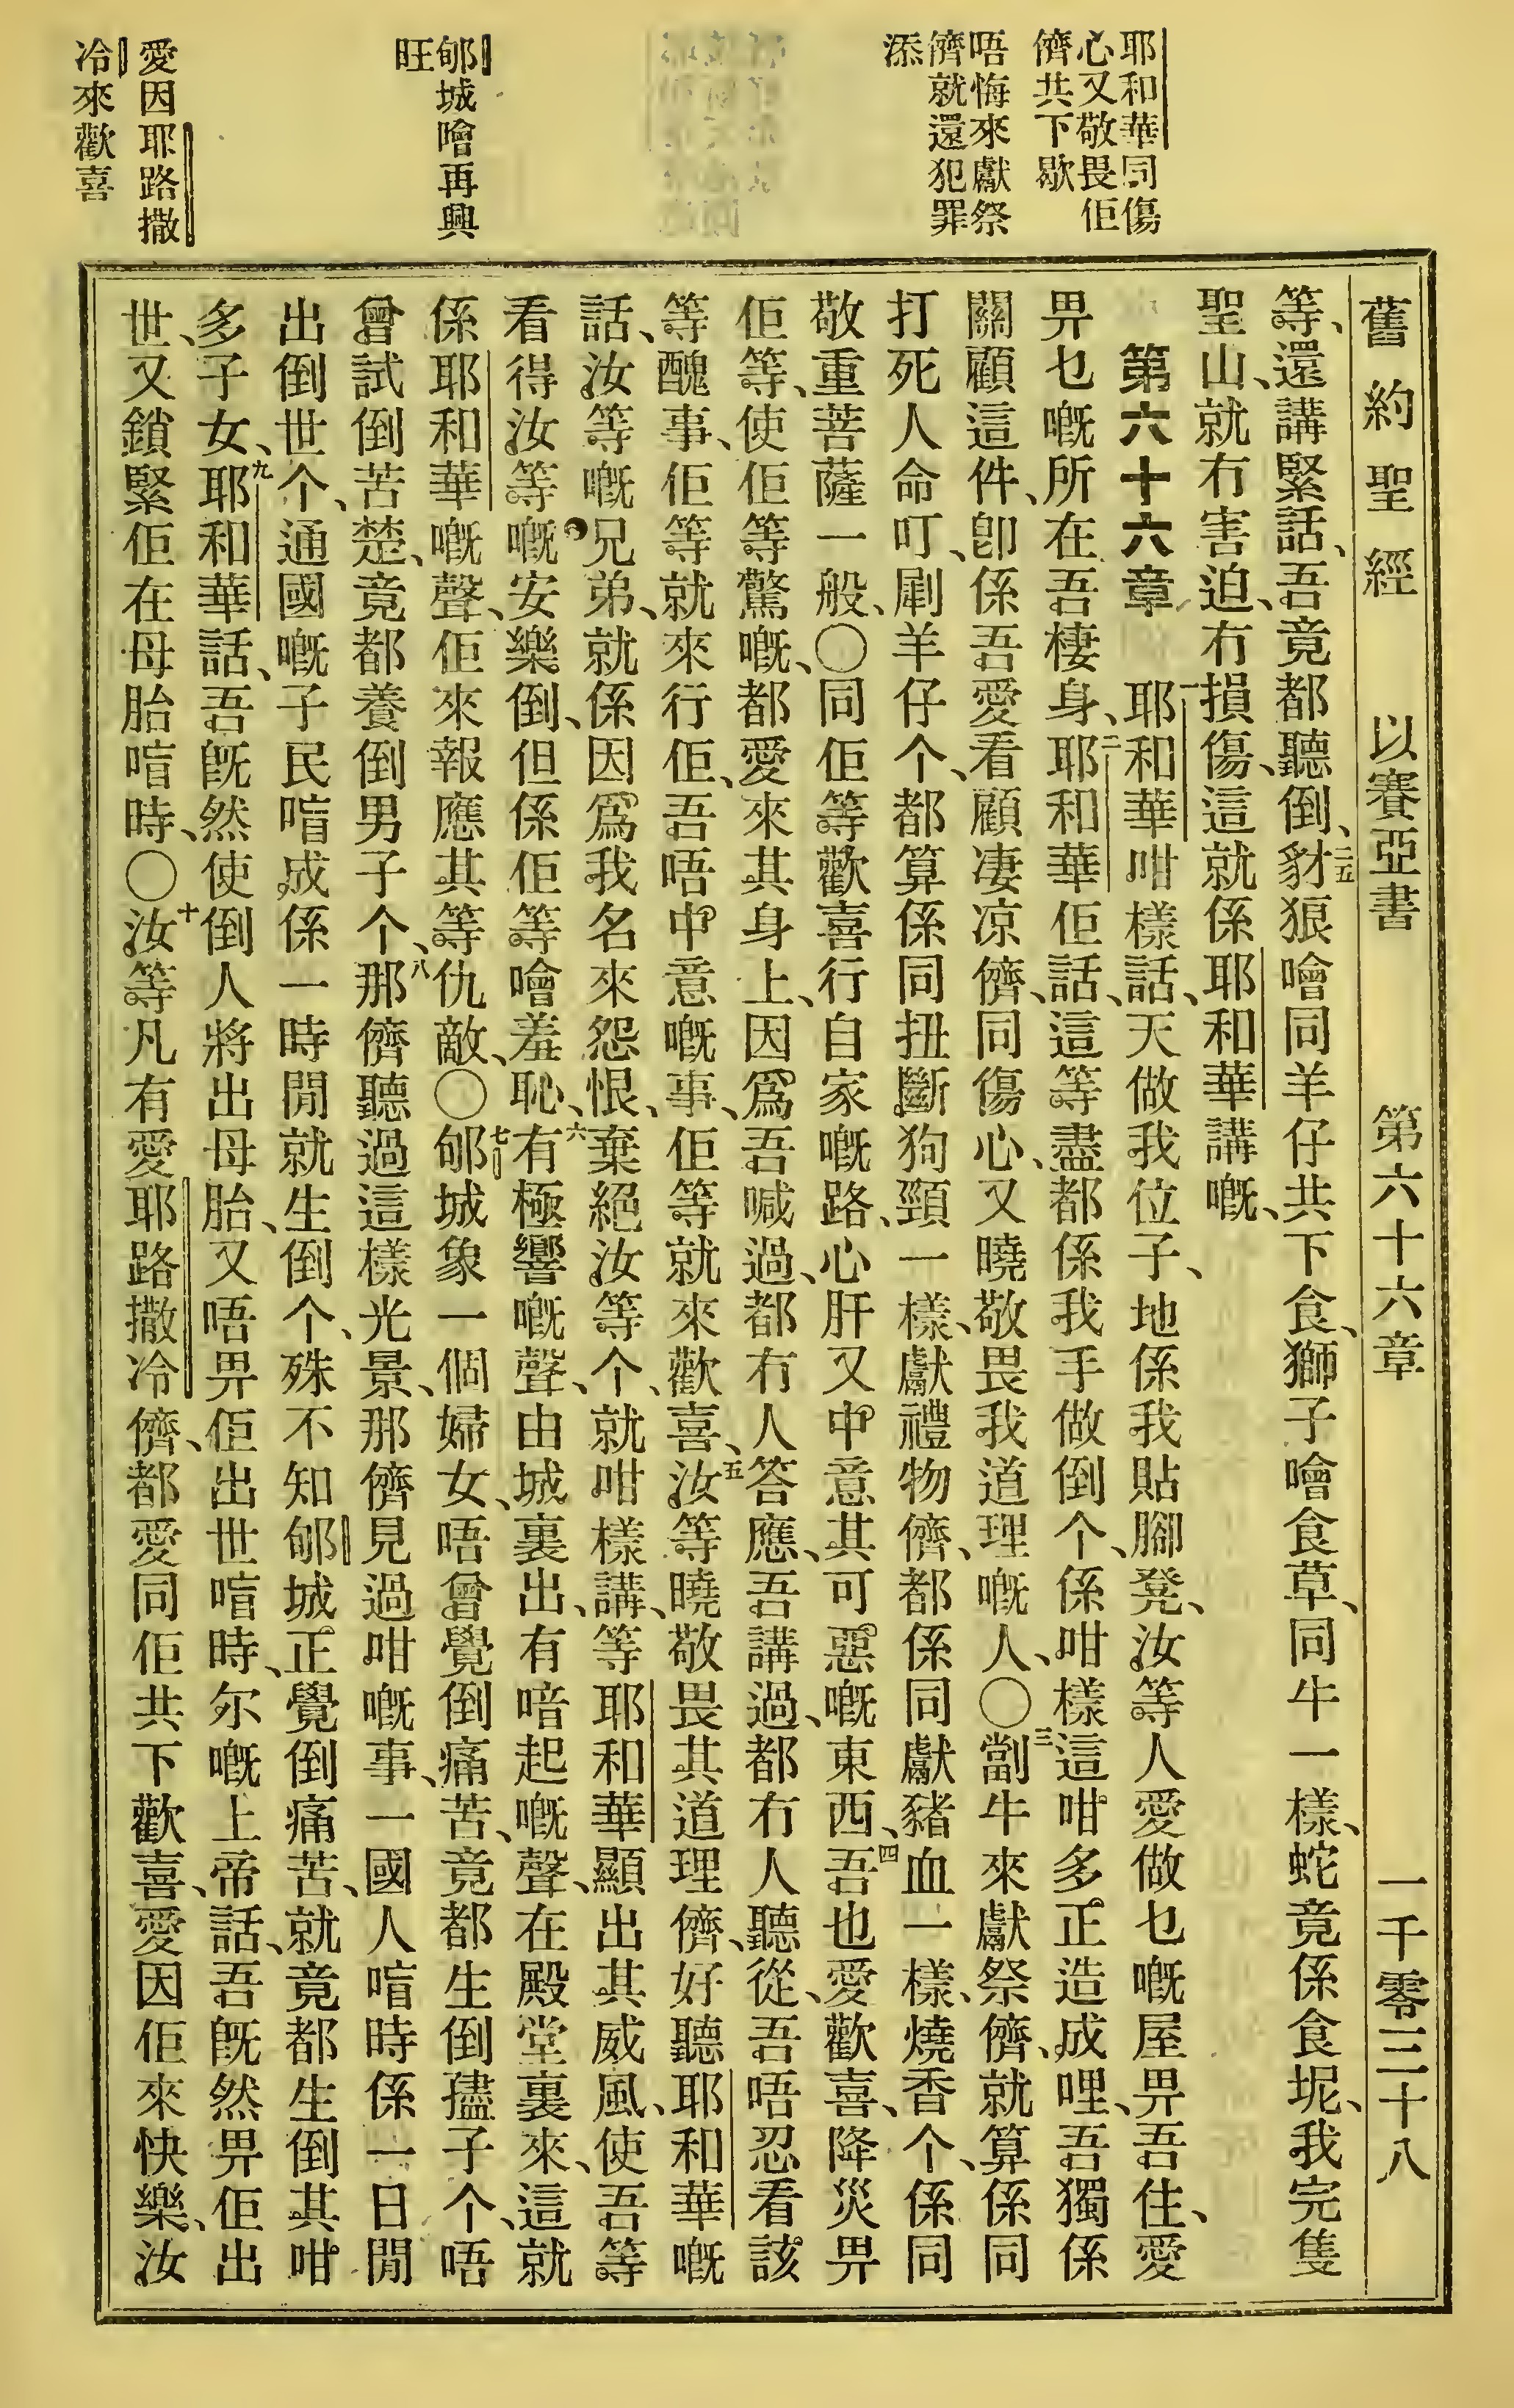 舊約聖經 以賽亞書 第六十六章 一千零三十八
耶和華同傷
心又敬畏佢
儕共下歇
唔悔來獻祭
儕就還犯罪
添
郇城噲再興
旺
愛因耶路撒
冷來歡喜
等、還講緊話、吾竟都聽倒、二五豺狼噲同羊仔共下食、獅子噲食草、同牛一樣、蛇竟係食坭、我完隻
聖山、就冇害迫、冇損傷、這就係耶和華講嘅、
第六十六章 一耶和華咁樣話、天做我位子、地係我貼腳凳、汝等人愛做乜嘅屋畀吾住、愛
畀乜嘅所在吾棲身、二耶和華佢話、這等盡都係我手做倒个、係咁樣這咁多正造成哩、吾獨係
關顧這件、卽係吾愛看顧凄凉儕、同傷心、又曉敬畏我道理嘅人、〇三劏牛來獻祭儕、就算係同
打死人命叮、劇羊仔个、都算係同扭斷狗頸一樣、獻禮物儕、都係同獻豬血一樣、燒香个、係同
敬重菩薩一般、〇同佢等歡喜行自家嘅路、心肝又中意其可惡嘅東西、四吾也愛歡喜、降災畀
佢等、使佢等驚嘅、都愛來其身上、因爲吾喊過、都冇人答應、吾講過、都冇人聽從、吾唔忍看該
等醜事、佢等就來行佢、吾唔中意嘅事、佢等就來歡喜、五汝等曉敬畏其道理儕、好聽耶和華嘅
話、汝等嘅兄弟、就係因爲我名來怨恨、棄絕汝等个、就咁樣講、等耶和華顯出其威風、使吾等
看得汝等嘅安樂倒、但係佢等噲羞恥、六有極響嘅聲、由城裏出、有喑起嘅聲、在殿堂裏來、這就
係耶和華嘅聲、佢來報應其等仇敵、〇七郇城象一個婦女、唔曾覺倒痛苦、竟都生倒孻子个、唔
曾試倒苦楚、竟都養倒男子个、八那儕聽過這樣光景、那儕見過咁嘅事、一國人喑時係一日閒
出倒世个、通國嘅子民喑成係一時閒就生倒个、殊不知郇城正覺倒痛苦、就竟都生倒其咁
多子女、九耶和華話、吾旣然使倒人將出母胎、又唔畀佢出世喑時、尔嘅上帝話、吾旣然畀佢出
世、又鎖緊佢在母胎喑時、〇十汝等凡有愛耶路撒冷儕、都愛同佢共下歡喜、愛因佢來快樂、汝